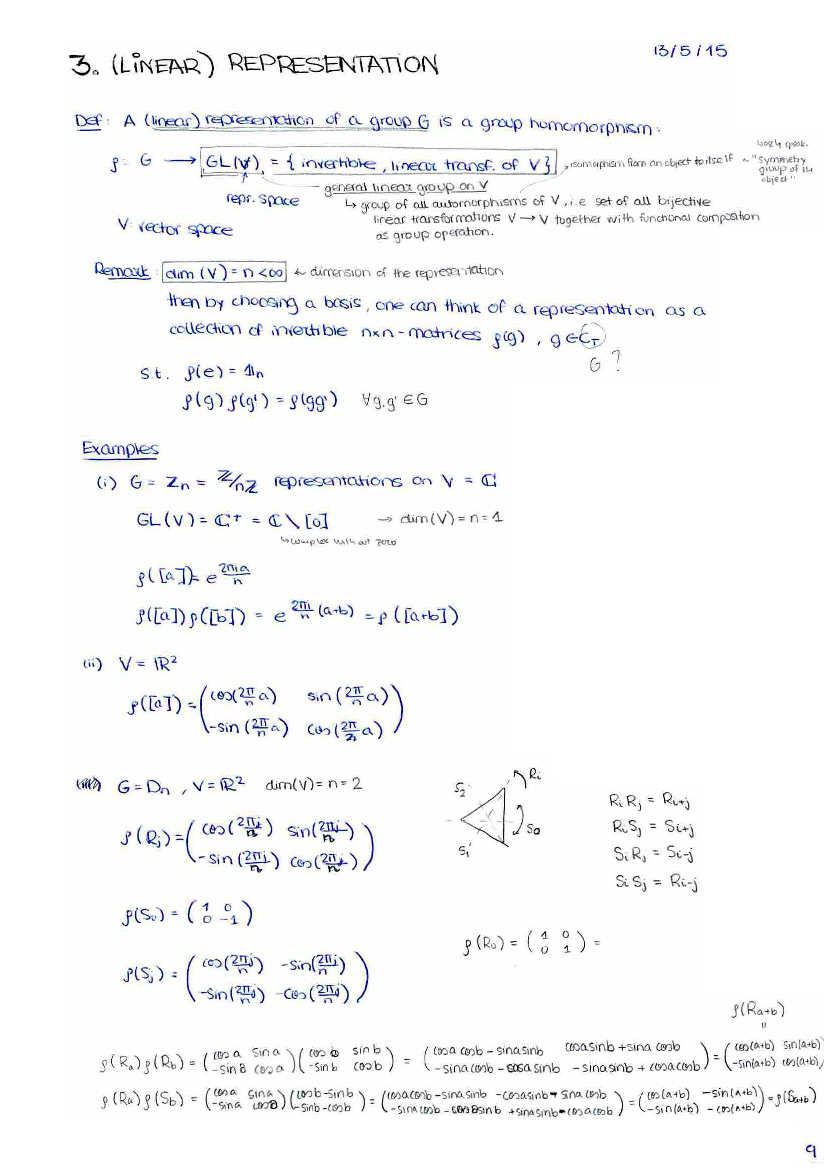 13/5/15
3. (LINEAR) REPRESENTATION
Def: A (linear) representation of a group G is a group homomorphism:
ρ: G → GL(V) = { invertible, linear transf. of V } , isomorphism from an object to itself ~ "symmetry group of the object"
loosely speak.
general linear group on V
repr. space
↳ group of all automorphisms of V, i.e set of all bijective
V: vector space
linear transformations V → V together with functional composition
as group operation.
Remark: dim (V) = n < ∞ ← dimension of the representation
then by choosing a basis, one can think of a representation as a
collection of invertible n×n-matrices ρ(g), g ∈ G
G ?
s.t. ρ(e) = 1ₙ
ρ(g) ρ(g') = ρ(gg') ∀g,g' ∈ G
Examples
(i) G = Zₙ = Z/nZ representations on V = ℂ
GL(V) = ℂ⁺ = ℂ \ [0] → dim(V) = n = 1
↳ complex without zero
ρ([a]) = e^(2πia/n)
ρ([a]) ρ([b]) = e^(2πi/n (a+b)) = ρ([a+b])
(ii) V = ℝ²
ρ([a]) = ( cos(2π/n a) sin(2π/n a)
-sin(2π/n a) cos(2π/n a) )
(iii) G = Dₙ , V = ℝ² dim(V) = n = 2
ρ(Rj) = ( cos(2πj/n) sin(2πj/n)
-sin(2πj/n) cos(2πj/n) )
S₂
Ri
S₀
S₁
Ri Rj = Ri+j
Ri Sj = Si+j
Si Rj = Si-j
Si Sj = Ri-j
ρ(S₀) = ( 1 0
0 -1 )
ρ(R₀) = ( 1 0
0 1 ) =
ρ(Sj) = ( cos(2πj/n) -sin(2πj/n)
-sin(2πj/n) -cos(2πj/n) )
ρ(Ra+b)
=
ρ(Ra) ρ(Rb) = ( cos a sin a
-sin a cos a ) ( cos b sin b
-sin b cos b ) = ( cosa cosb - sina sinb cosa sinb + sina cosb
-sina cosb - cosa sinb -sina sinb + cosa cosb ) = ( cos(a+b) sin(a+b)
-sin(a+b) cos(a+b) )
ρ(Ra) ρ(Sb) = ( cosa sina
-sina cosa ) ( cosb -sinb
-sinb -cosb ) = ( cosa cosb - sina sinb -cosa sinb - sina cosb
-sina cosb - cosa sinb + sina sinb - cosa cosb ) = ( cos(a+b) -sin(a+b)
-sin(a+b) -cos(a+b) ) = ρ(Sa+b)
9